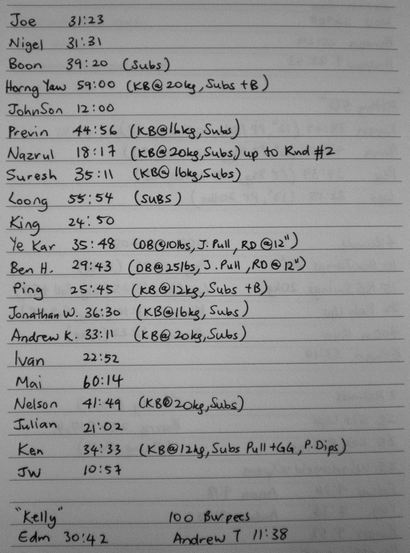 Joe 31:23
Nigel 31:31
Boon 39:20 (Subs)
Horng Yaw 59:00 (KB@20kg, Subs +B)
JohnSon 12:00
Previn 44:56 (KB@16kg, Subs)
Nazrul 18:17 (KB@20kg, Subs) up to Rnd #2
Suresh 35:11 (KB@16kg, Subs)
Loong 55:54 (SUBS)
King 24:50
Ye Kar 35:48 (DB@10lbs, J.Pull, RD@12")
Ben H. 29:43 (DB@25lbs, J.Pull, RD@12")
Ping 25:45 (KB@12kg, Subs +B)
Jonathan W. 36:30 (KB@16kg, Subs)
Andrew K. 33:11 (KB@20kg, Subs)
Ivan 22:52
Mai 60:14
Nelson 41:49 (KB@20kg, Subs)
Julian 21:02
Ken 34:33 (KB@12kg, Subs Pull+GG, P.Dips)
JW 10:57
"Kelly" 100 Burpees
Edm 30:42 Andrew T 11:38